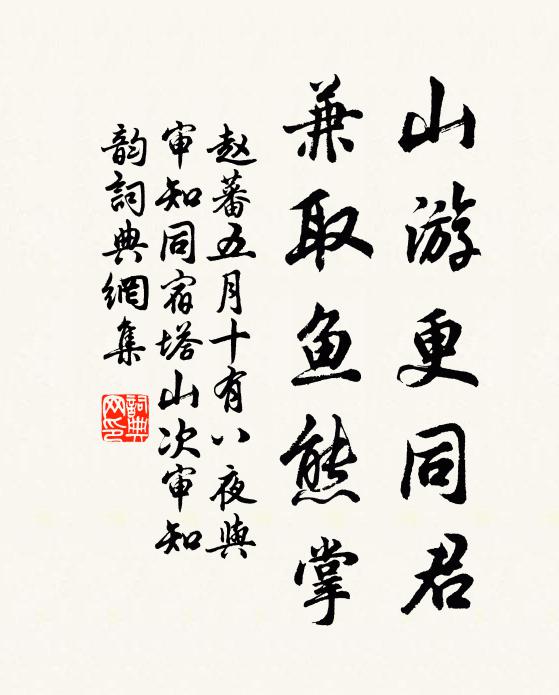 山游更同君
兼取鱼熊掌
赵蕃五月十有八夜與
审知同宿塔山次审知
韵詞典網集
詞典网印